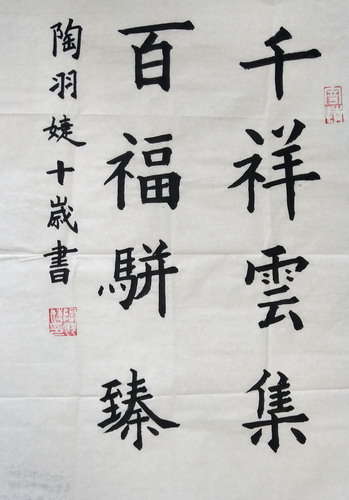 千祥雲集
百福駢臻
陶羽婕十歲書